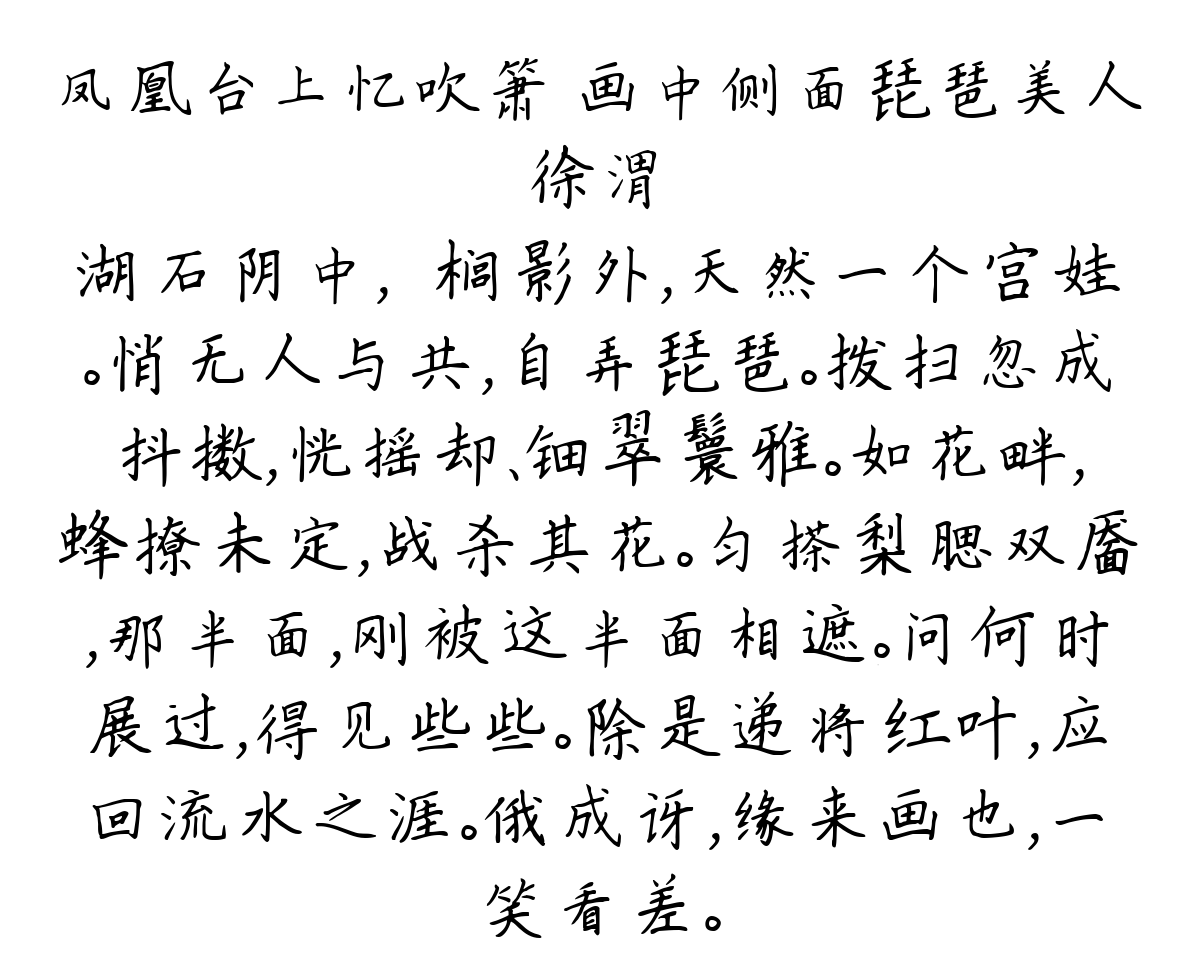 凤凰台上忆吹箫 画中侧面琵琶美人
徐渭
湖石阴中，槅影外,天然一个宫娃
。悄无人与共,自弄琵琶。拨扫忽成
抖擞,恍摇却、钿翠鬟雅。如花畔,
蜂撩未定,战杀其花。匀搽梨腮双靥
,那半面,刚被这半面相遮。问何时
展过,得见些些。除是递将红叶,应
回流水之涯。俄成讶,缘来画也,一
笑看差。